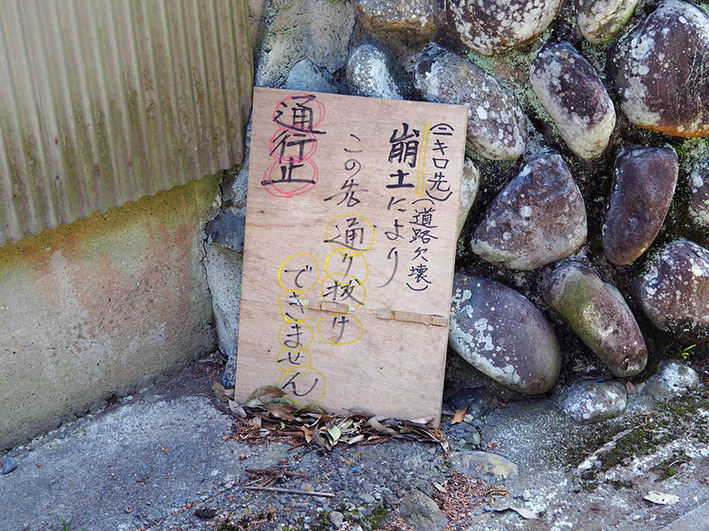 (二キロ先)
崩土により
(道路欠壊)
この先
通り抜け
できません
通行止